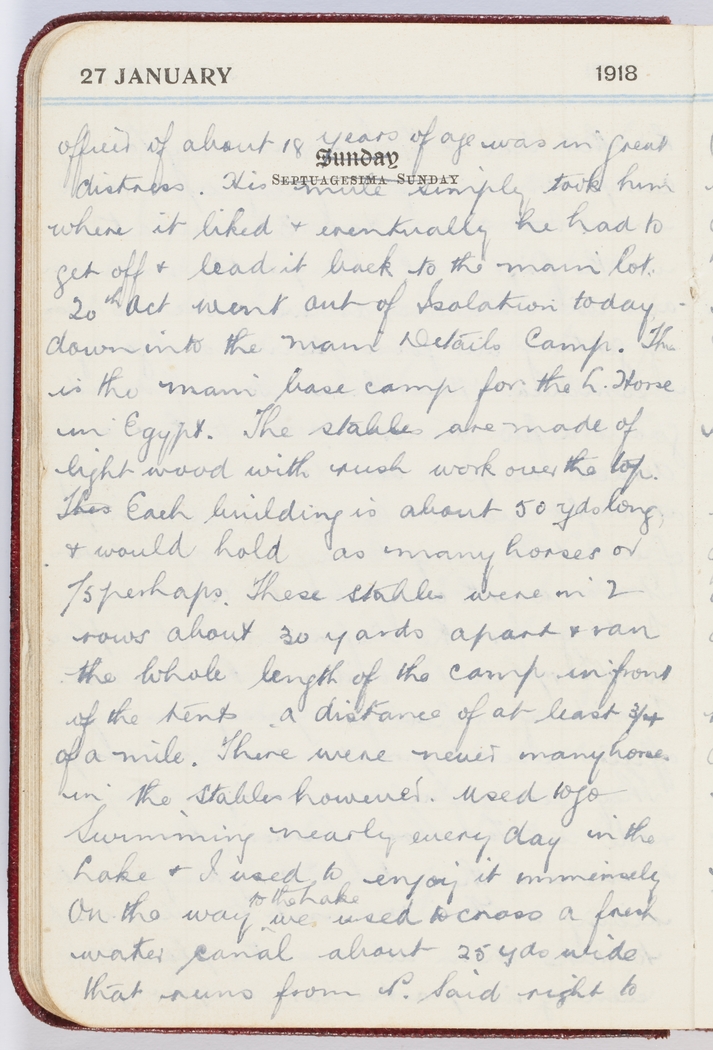 27 JANUARY 1918
Sunday
SEPTUAGESIMA SUNDAY
officer of about 18 years of age was in great
distress. His mule simply took him
where it liked & eventually he had to
get off & lead it back to the main lot.
20th Oct went out of Isolation today
down into the main Details Camp. This
is the main base camp for the L. Horse
in Egypt. The stables are made of
light wood with rush work over the top.
Thes Each building is about 50 yds long
& would hold as many horses or
75 perhaps. These stables were in 2
rows about 30 yards apart & ran
the whole length of the camp in front
of the tents a distance of at least 3/4
of a mile. There were never many horses
in the stables however. Used to go
Swimming nearly every day in the
Lake & I used to enjoy it immensely
On the way to the Lake we used to cross a fresh
water canal about 25 yds wide
that runs from P. Said right to